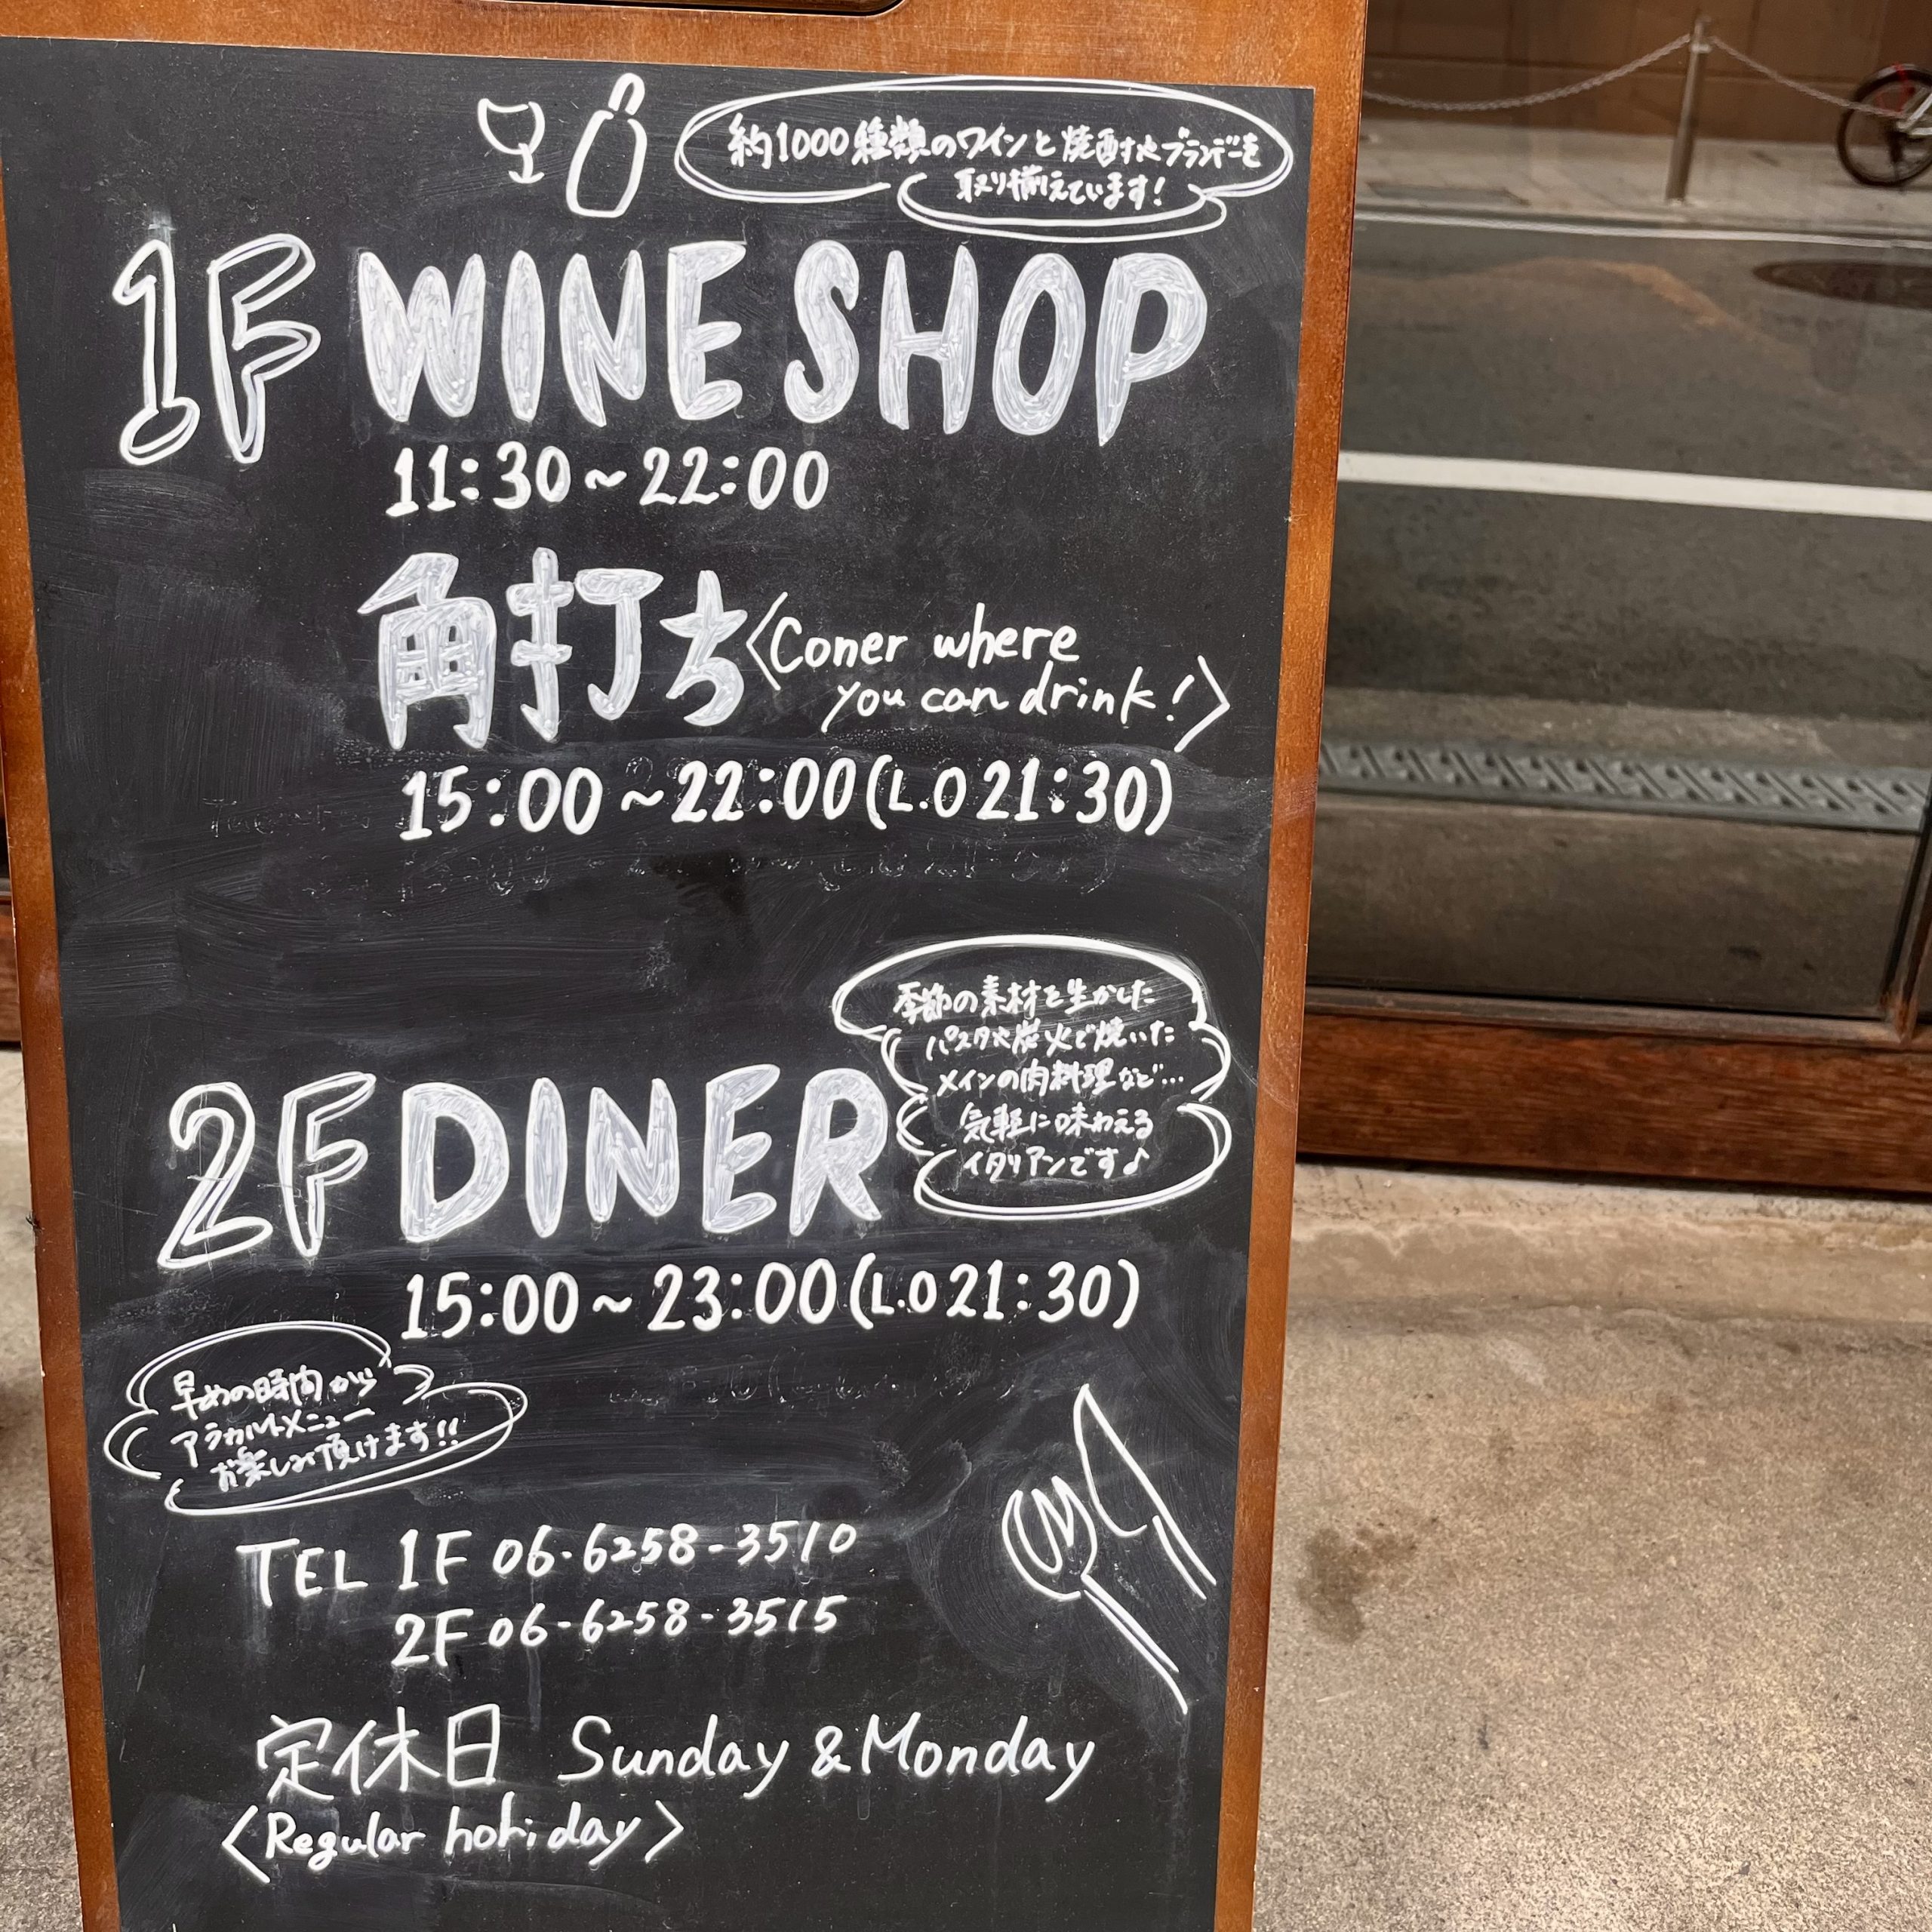 約1000種類のワインと焼酎やブランデーを
取り揃えています!
1F WINE SHOP
11:30~22:00
角打ち〈Coner where
you can drink!〉
15:00~22:00(L.O 21:30)
季節の素材を生かした
パスタや炭火で焼いた
メインの肉料理など…
気軽に味わえる
イタリアンです♪
2F DINER
15:00~23:00(L.O 21:30)
早めの時間から
アラカルトメニュー
お楽しみ頂けます!!
TEL 1F 06-6258-3510
2F 06-6258-3515
定休日 Sunday & Monday
〈Regular holiday〉